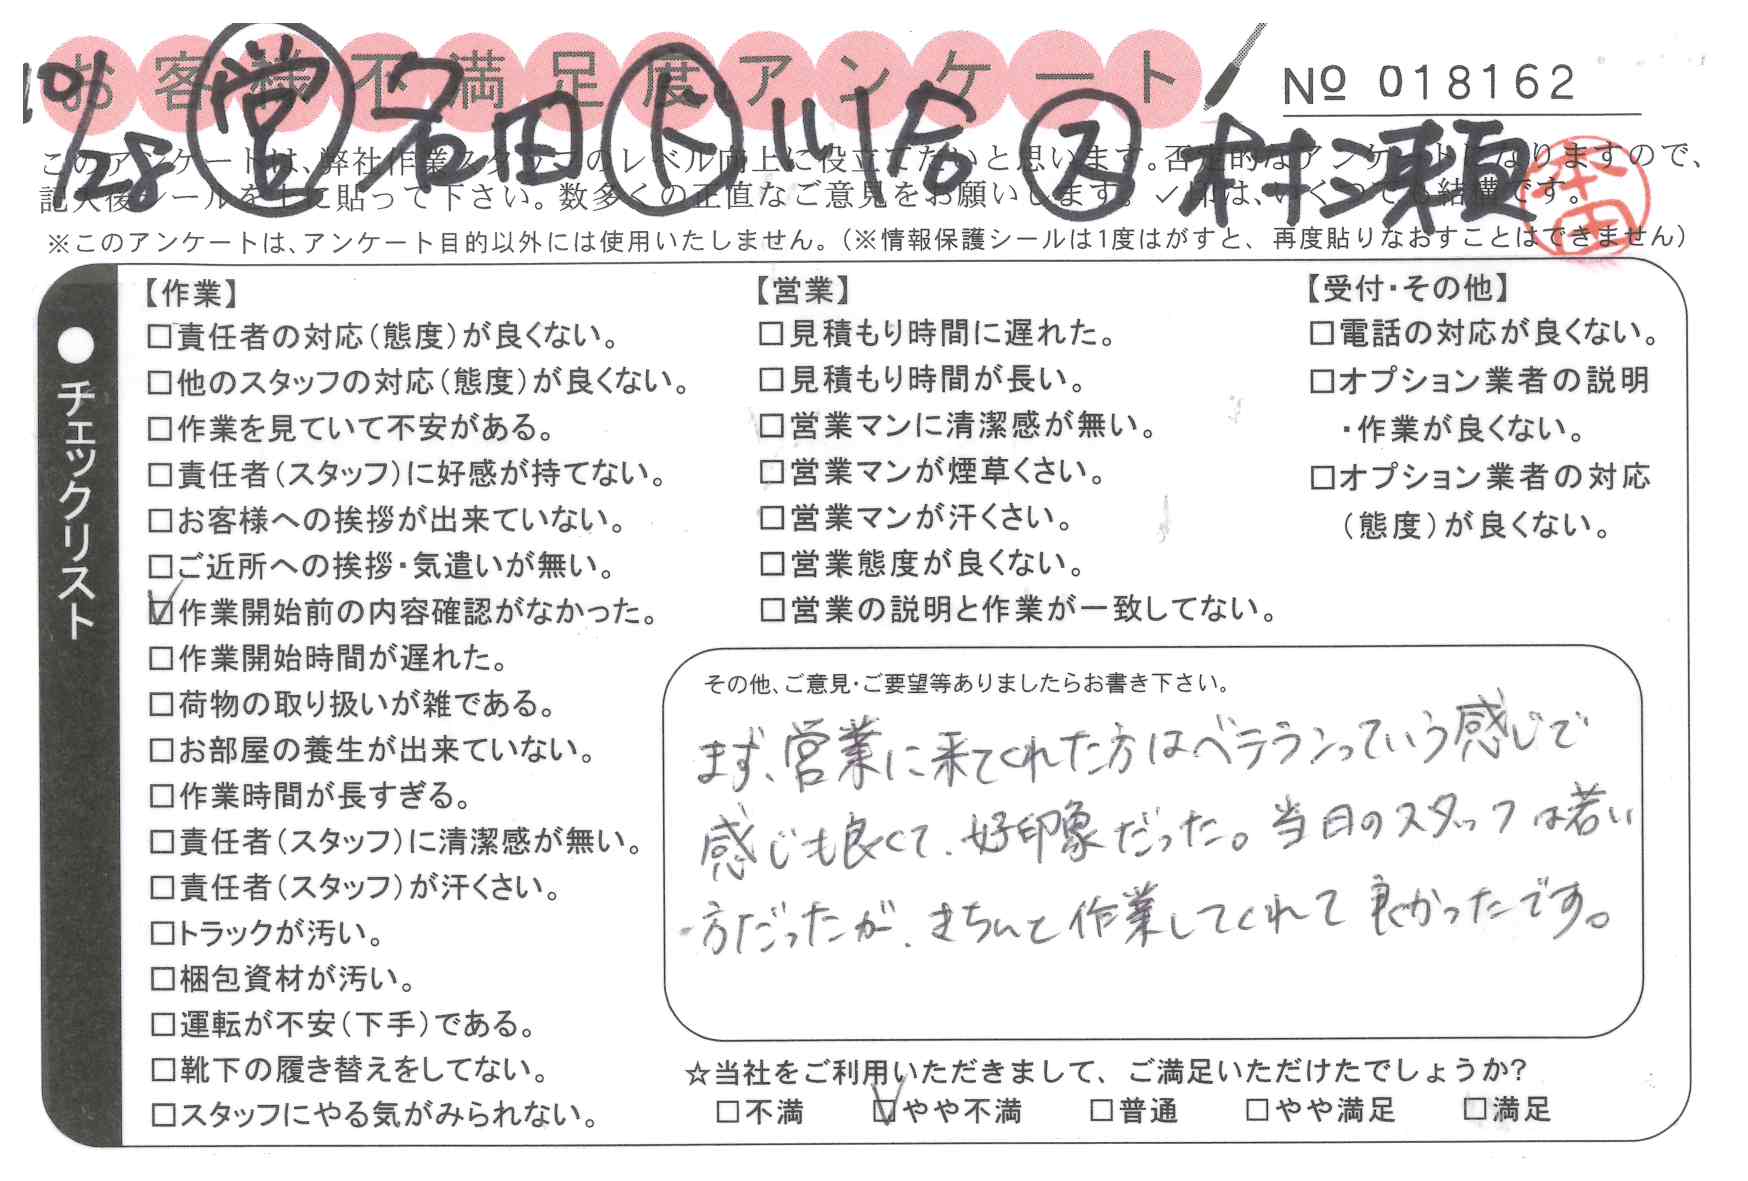 お客様不満足度アンケート
№ 018162
10/28 営 名田 ト 川合 ス 村瀬
本田
このアンケートは、弊社作業スタッフのレベル向上に役立てたいと思います。否定的なアンケートになりますので、
記入後シールを上に貼って下さい。数多くの正直なご意見をお願いします。✓印は、いくつでも結構です。
※このアンケートは、アンケート目的以外には使用いたしません。(※情報保護シールは1度はがすと、再度貼りなおすことはできません)
●チェックリスト
【作業】
□責任者の対応(態度)が良くない。
□他のスタッフの対応(態度)が良くない。
□作業を見ていて不安がある。
□責任者(スタッフ)に好感が持てない。
□お客様への挨拶が出来ていない。
□ご近所への挨拶・気遣いが無い。
☑作業開始前の内容確認がなかった。
□作業開始時間が遅れた。
□荷物の取り扱いが雑である。
□お部屋の養生が出来ていない。
□作業時間が長すぎる。
□責任者(スタッフ)に清潔感が無い。
□責任者(スタッフ)が汗くさい。
□トラックが汚い。
□梱包資材が汚い。
□運転が不安(下手)である。
□靴下の履き替えをしてない。
□スタッフにやる気がみられない。
【営業】
□見積もり時間に遅れた。
□見積もり時間が長い。
□営業マンに清潔感が無い。
□営業マンが煙草くさい。
□営業マンが汗くさい。
□営業態度が良くない。
□営業の説明と作業が一致してない。
【受付・その他】
□電話の対応が良くない。
□オプション業者の説明
・作業が良くない。
□オプション業者の対応
(態度)が良くない。
その他、ご意見・ご要望等ありましたらお書き下さい。
まず、営業に来てくれた方はベテランっていう感じで
感じも良くて、好印象だった。当日のスタッフは若い
方だったが、きちんと作業してくれて良かったです。
☆当社をご利用いただきまして、ご満足いただけたでしょうか?
□不満 ☑やや不満 □普通 □やや満足 □満足